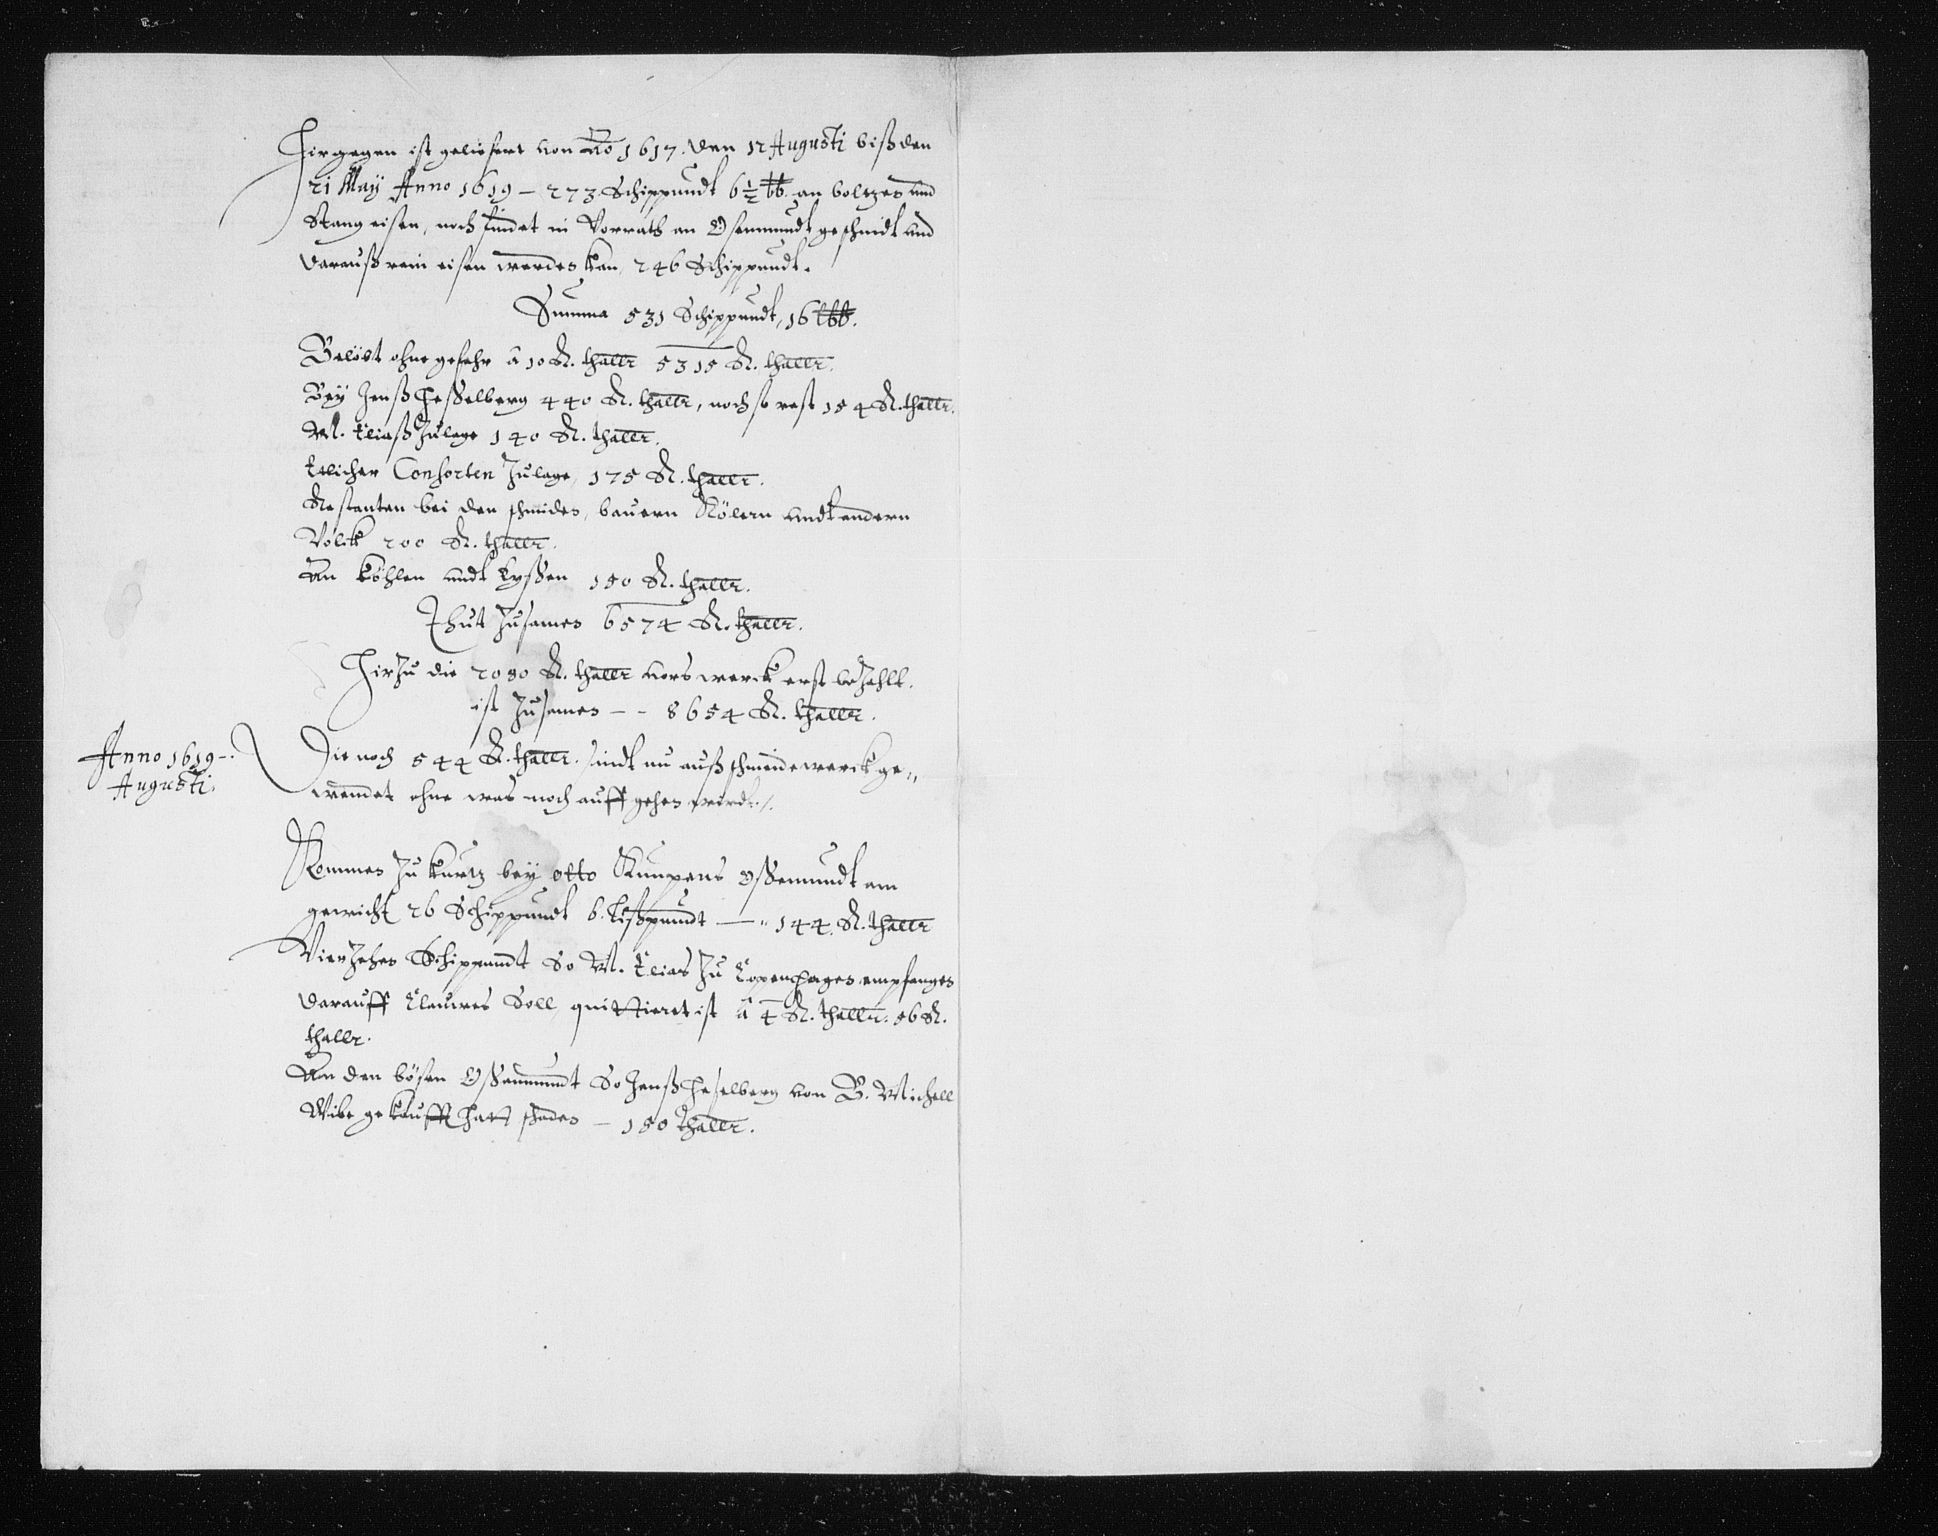 Hirgegen ist geliefert von Ao 1617. den 12 Augusti biß den
21 May Anno 1619 – 273 Schippundt 6½ ℔. an boltzen und
Stang eisen, noch findet in Vorrath an Osemundt geschmidt und
darauß rein eisen werden kan 246 Schippundt.
Summa 531 Schippundt, 16 l℔.
Belöbt ohne gefehr â 10 R. thallr 5315 R. thallr.
Bey Jenß Heßelberg 440 R. thallr, noch so rest 154 R. thallr.
M. Eliaß Zulage 140 R. thallr.
Etlicher Consorten Zulage, 175 R. thallr.
Restanten bei den schmiden, bauern Kölern undt andern
Volck 200 R. thallr.
An Köhlen undt 150 R. thallr.
Thut Zusamen 6574 R. thallr.
Hirzu die 2080 R. thallr vors werck erst bezahlt.
ist Zusamen – – 8654 R. thallr.
Anno 1619 –.
Augusti.
Die noch 544 R. thallr. sindt nu auß schmidewerck ge„
wendet ohne was noch auff gehen wirdt.
Kommen Zu kurtz bey otto Kumpens Oßemundt am
gewicht 26 Schippundt 6. Lißpundt — „ 144. R. thallr
Vierzehen Schippundt So M. Elias Zu Copenhagen empfangen
darauff Claures Soll quittieret ist â 4 R. thallr. 56 R.
thallr.
An den bösen Oßemundt So Jenß Heselberg von B. Michell
Wibe gekaufft hatt schaden – 150 thallr.